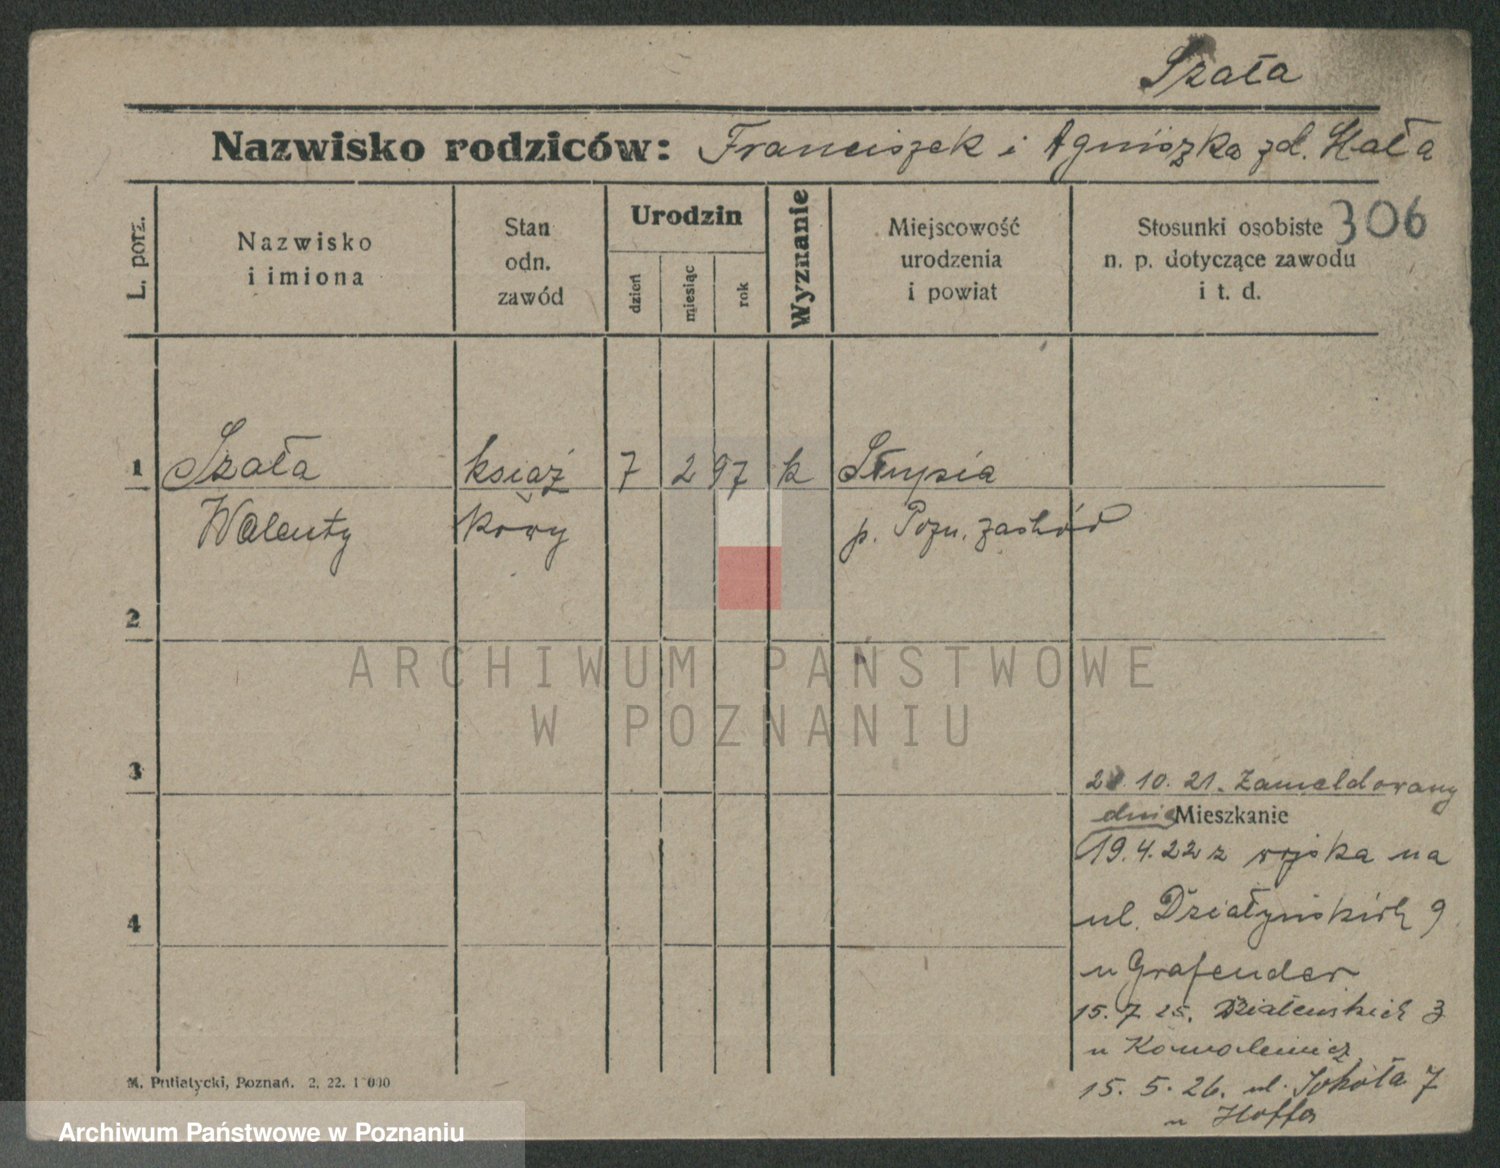 Szała
Nazwisko rodziców: Franciszek i Agniszka zd. Hała
L. porz.
Nazwisko
i imiona
Stan
odn.
zawód
Urodzin
dzień
miesiąc
rok
Wyznanie
Miejscowość
urodzenia
i powiat
Stosunki osobiste
n. p. dotyczące zawodu
i t. d.
306
1 Szała książ 7 2 97 k
Walenty kowy p. Pozn. zachód
2
3
4
10. 21. Zameldowany
dnia Mieszkanie
19.4.22 z wojska na
ul. Działyńskich 9
u Grafender
15. 7 25. 3
u Kowalewicz
15. 5. 26. ul. Sokoła 7
u Hoffa
M. Putiatycki, Poznań. 2. 22.
ARCHIWUM PAŃSTWOWE
W POZNANIU
Archiwum Państwowe w Poznaniu